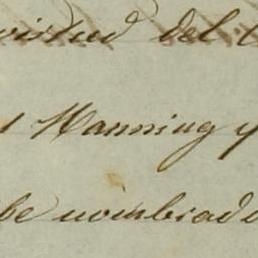 virtud del
Manning y
be nombrado